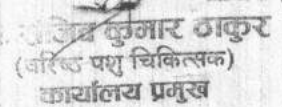 कुमार ठाकुर
(वरिष्ठ पशु चिकित्सक)
कार्यालय प्रमुख